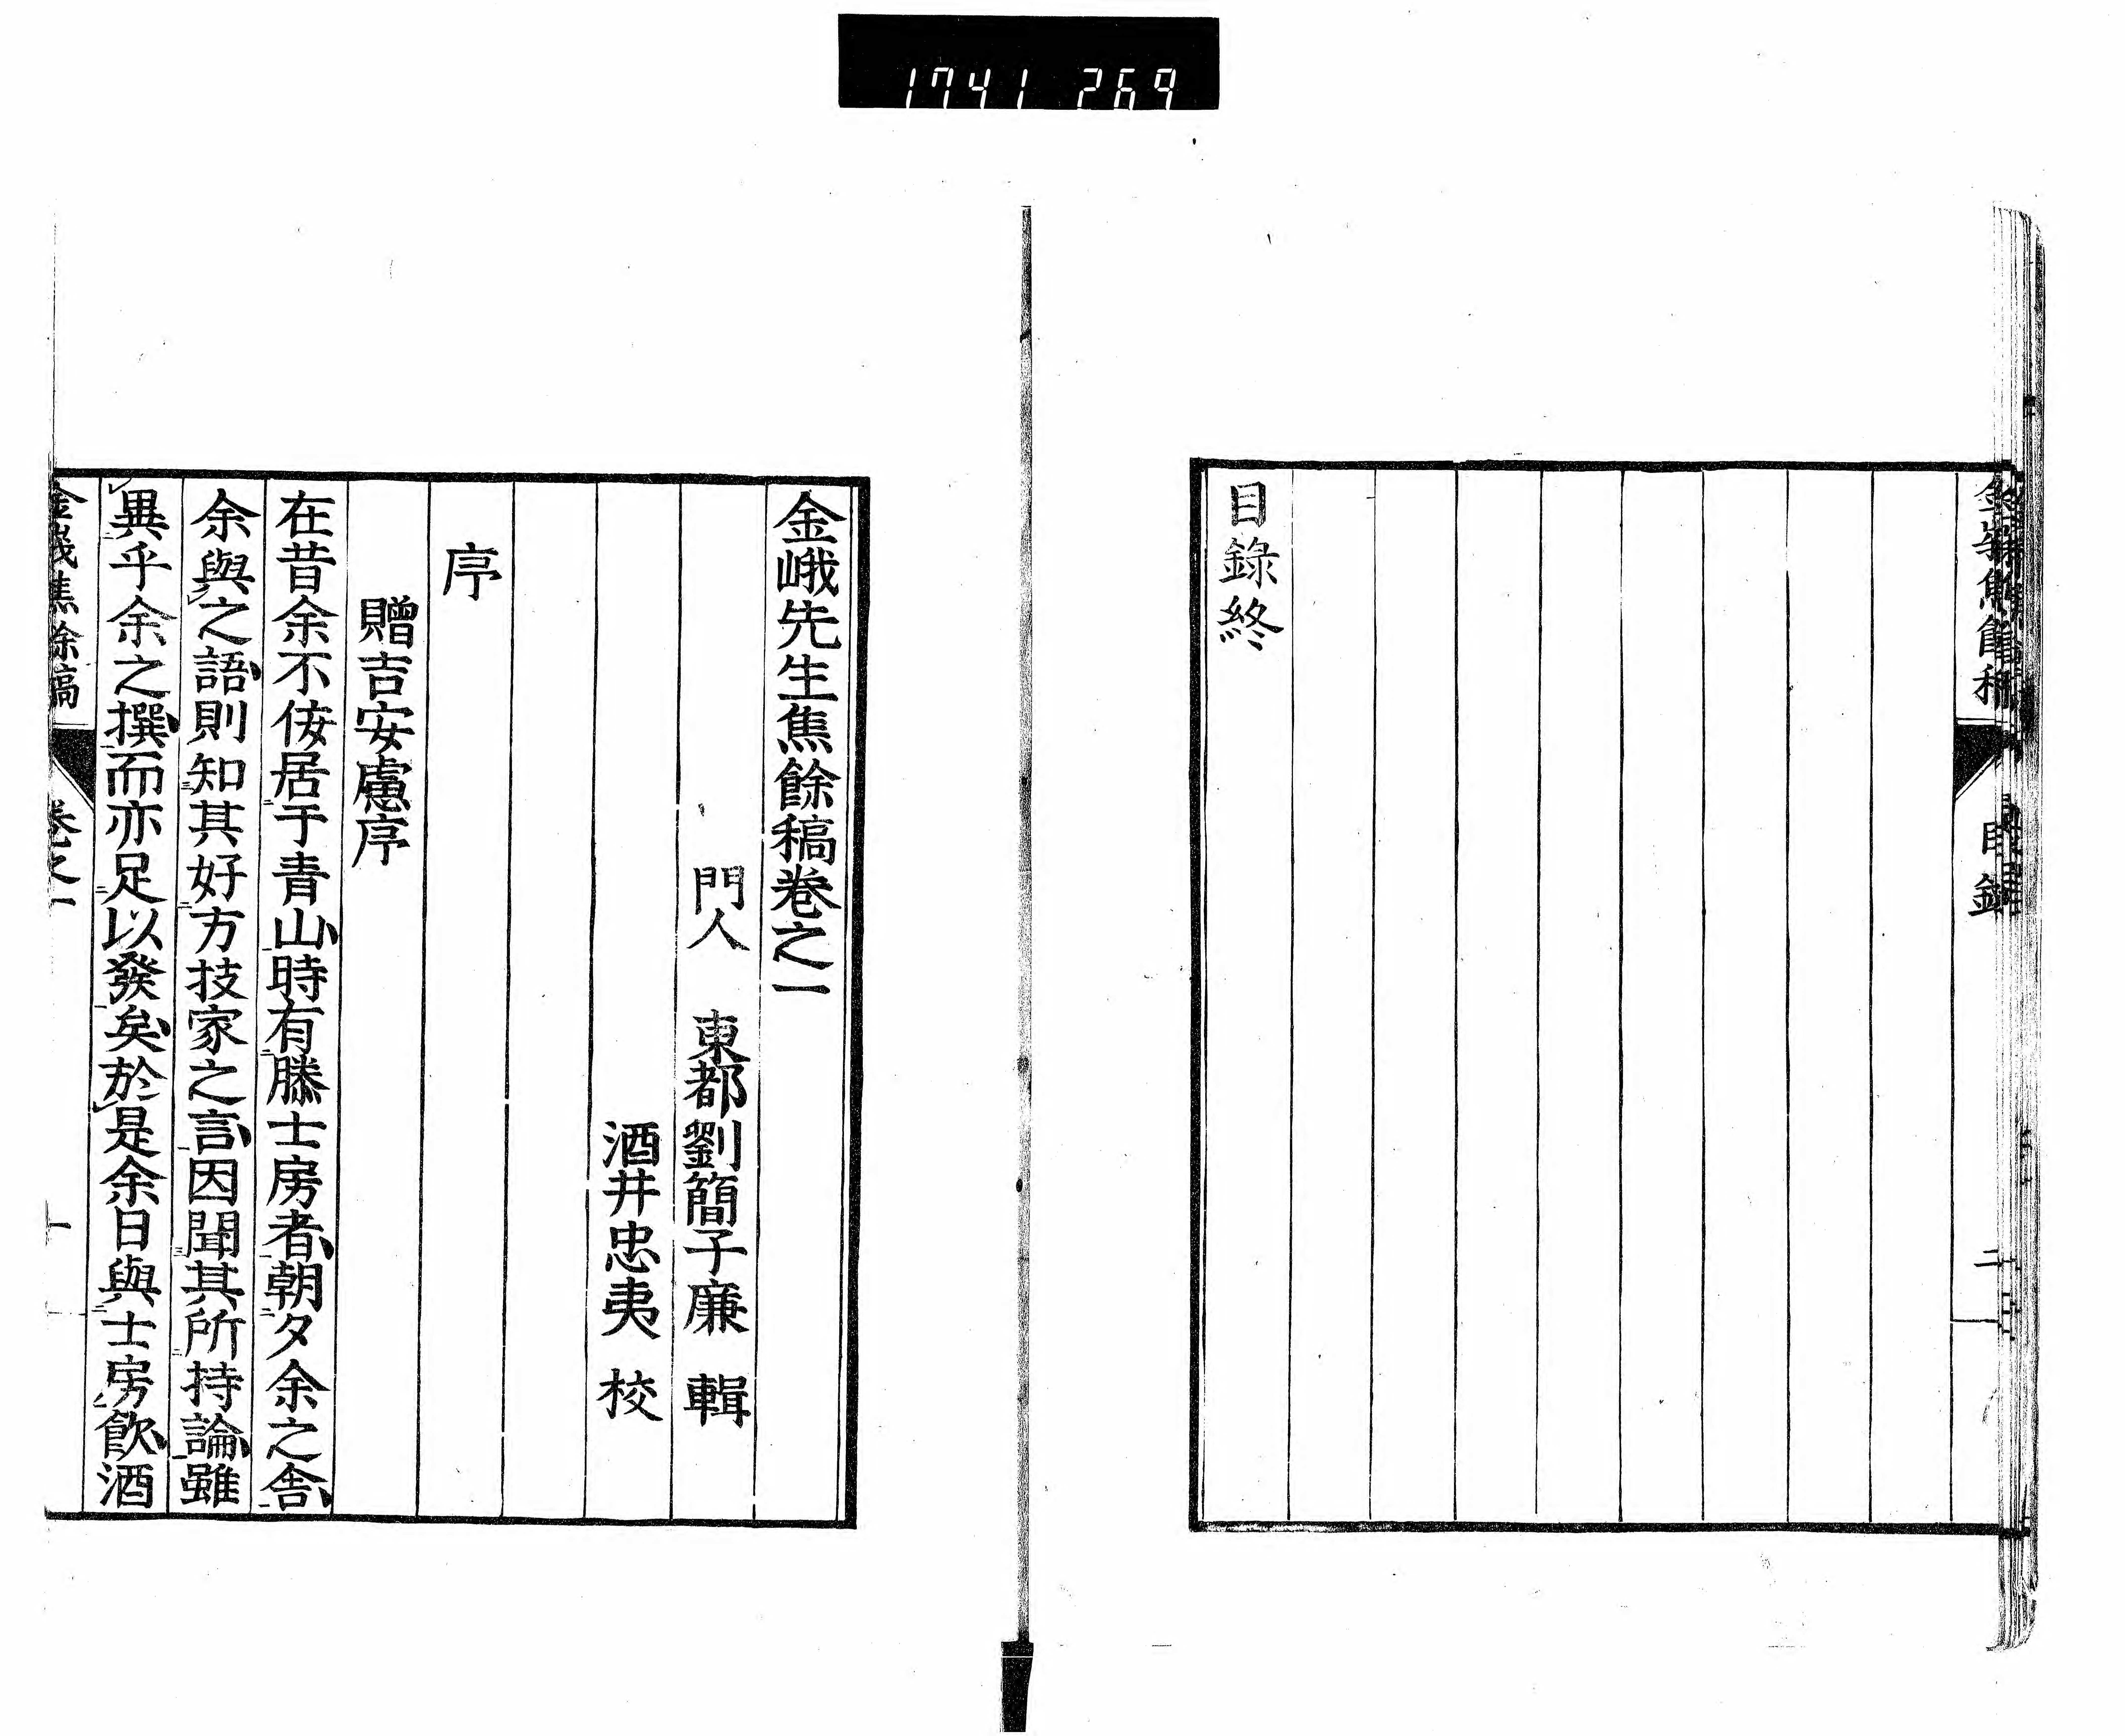 1741 269
目錄終
金峨先生焦餘稿卷之一
門人 東都劉簡子廉 輯
酒井忠夷 校
序
贈吉安慮序
在昔余不侫居于青山時有滕士房者朝夕余之舎
余與之語則知其好方技家之言因聞其所持論雖
異乎余之撰而亦足以發矣於是余日與士房飲酒